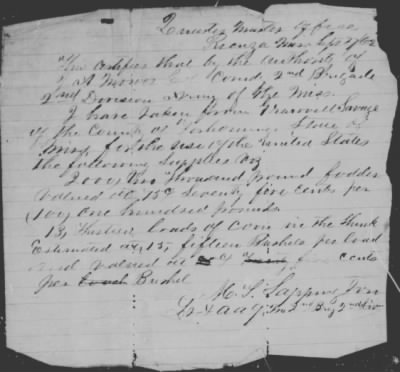 Quarter Master Office
Miss Sept 7/62
This certifies that by the authority of
J A Mower Col Comd, 2nd Brigade
2nd Division Army of the Miss.
I have taken from Savage
of the County of State of
Miss, for the use of the United States
the following supplies
2000, Two Thousand pound fodder
valued at 75¢ Seventy five cents per
(100) one hundred pounds
13, Thirteen loads of corn in the Shuck
Estimated at, 15, fifteen Bushels per load
and valued at five cents
per Bushel
M. S.
Lt & 2nd Brig 2nd Div